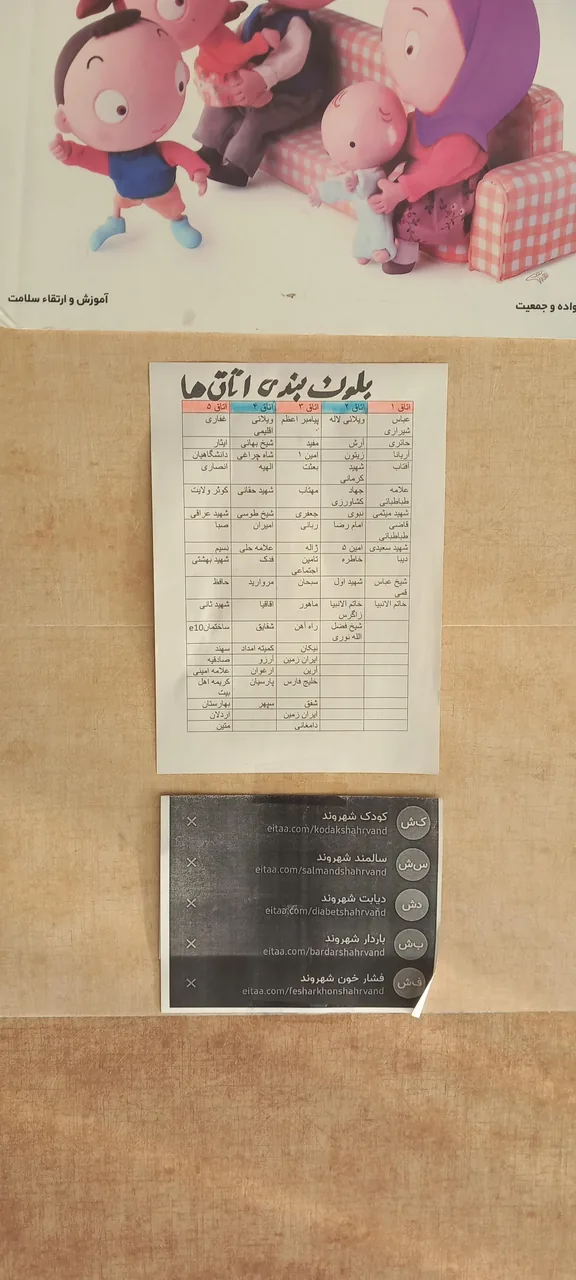 آموزش و ارتقاء سلامت
واده و جمعیت
بلوک بندی اتاق ها
اتاق ۱ اتاق ۲ اتاق ۳ اتاق ۴ اتاق ۵
عباس شیرازی ویلائی لاله پیامبر اعظم ویلائی اقلیمی غفاری
حائری آرش مفید شیخ بهائی ایثار
آریانا زیتون امین ۱ شاه چراغی دانشگاهیان
آفتاب شهید کرمانی بعثت الهیه انصاری
علامه طباطبائی جهاد کشاورزی مهتاب شهید حقانی کوثر ولایت
شهید میثمی نبوی جعفری شیخ طوسی شهید عراقی
قاضی طباطبائی امام رضا ربانی امیران صبا
شهید سعیدی امین ۵ ژاله علامه حلی نسیم
دیبا خاطره تامین اجتماعی فدک شهید بهشتی
شیخ عباس قمی شهید اول سبحان مروارید حافظ
خاتم الانبیا خاتم الانبیا زاگرس ماهور اقاقیا شهید ثانی
شیخ فضل الله نوری راه آهن شقایق ساختمانe10
نیکان کمیته امداد سهند
ایران زمین آرزو صادقیه
آرین ارغوان علامه امینی
خلیج فارس پارسیان کریمه اهل بیت
شفق سپهر بهارستان
ایران زمین اردلان
دامغانی متین
کودک شهروند
کش
eitaa.com/kodakshahrvand
سالمند شهروند
سش
eitaa.com/salmandshahrvand
دیابت شهروند
دش
eitaa.com/diabetshahrvand
باردار شهروند
بش
eitaa.com/bardarshahrvand
فشار خون شهروند
فش
eitaa.com/fesharkhonshahrvand